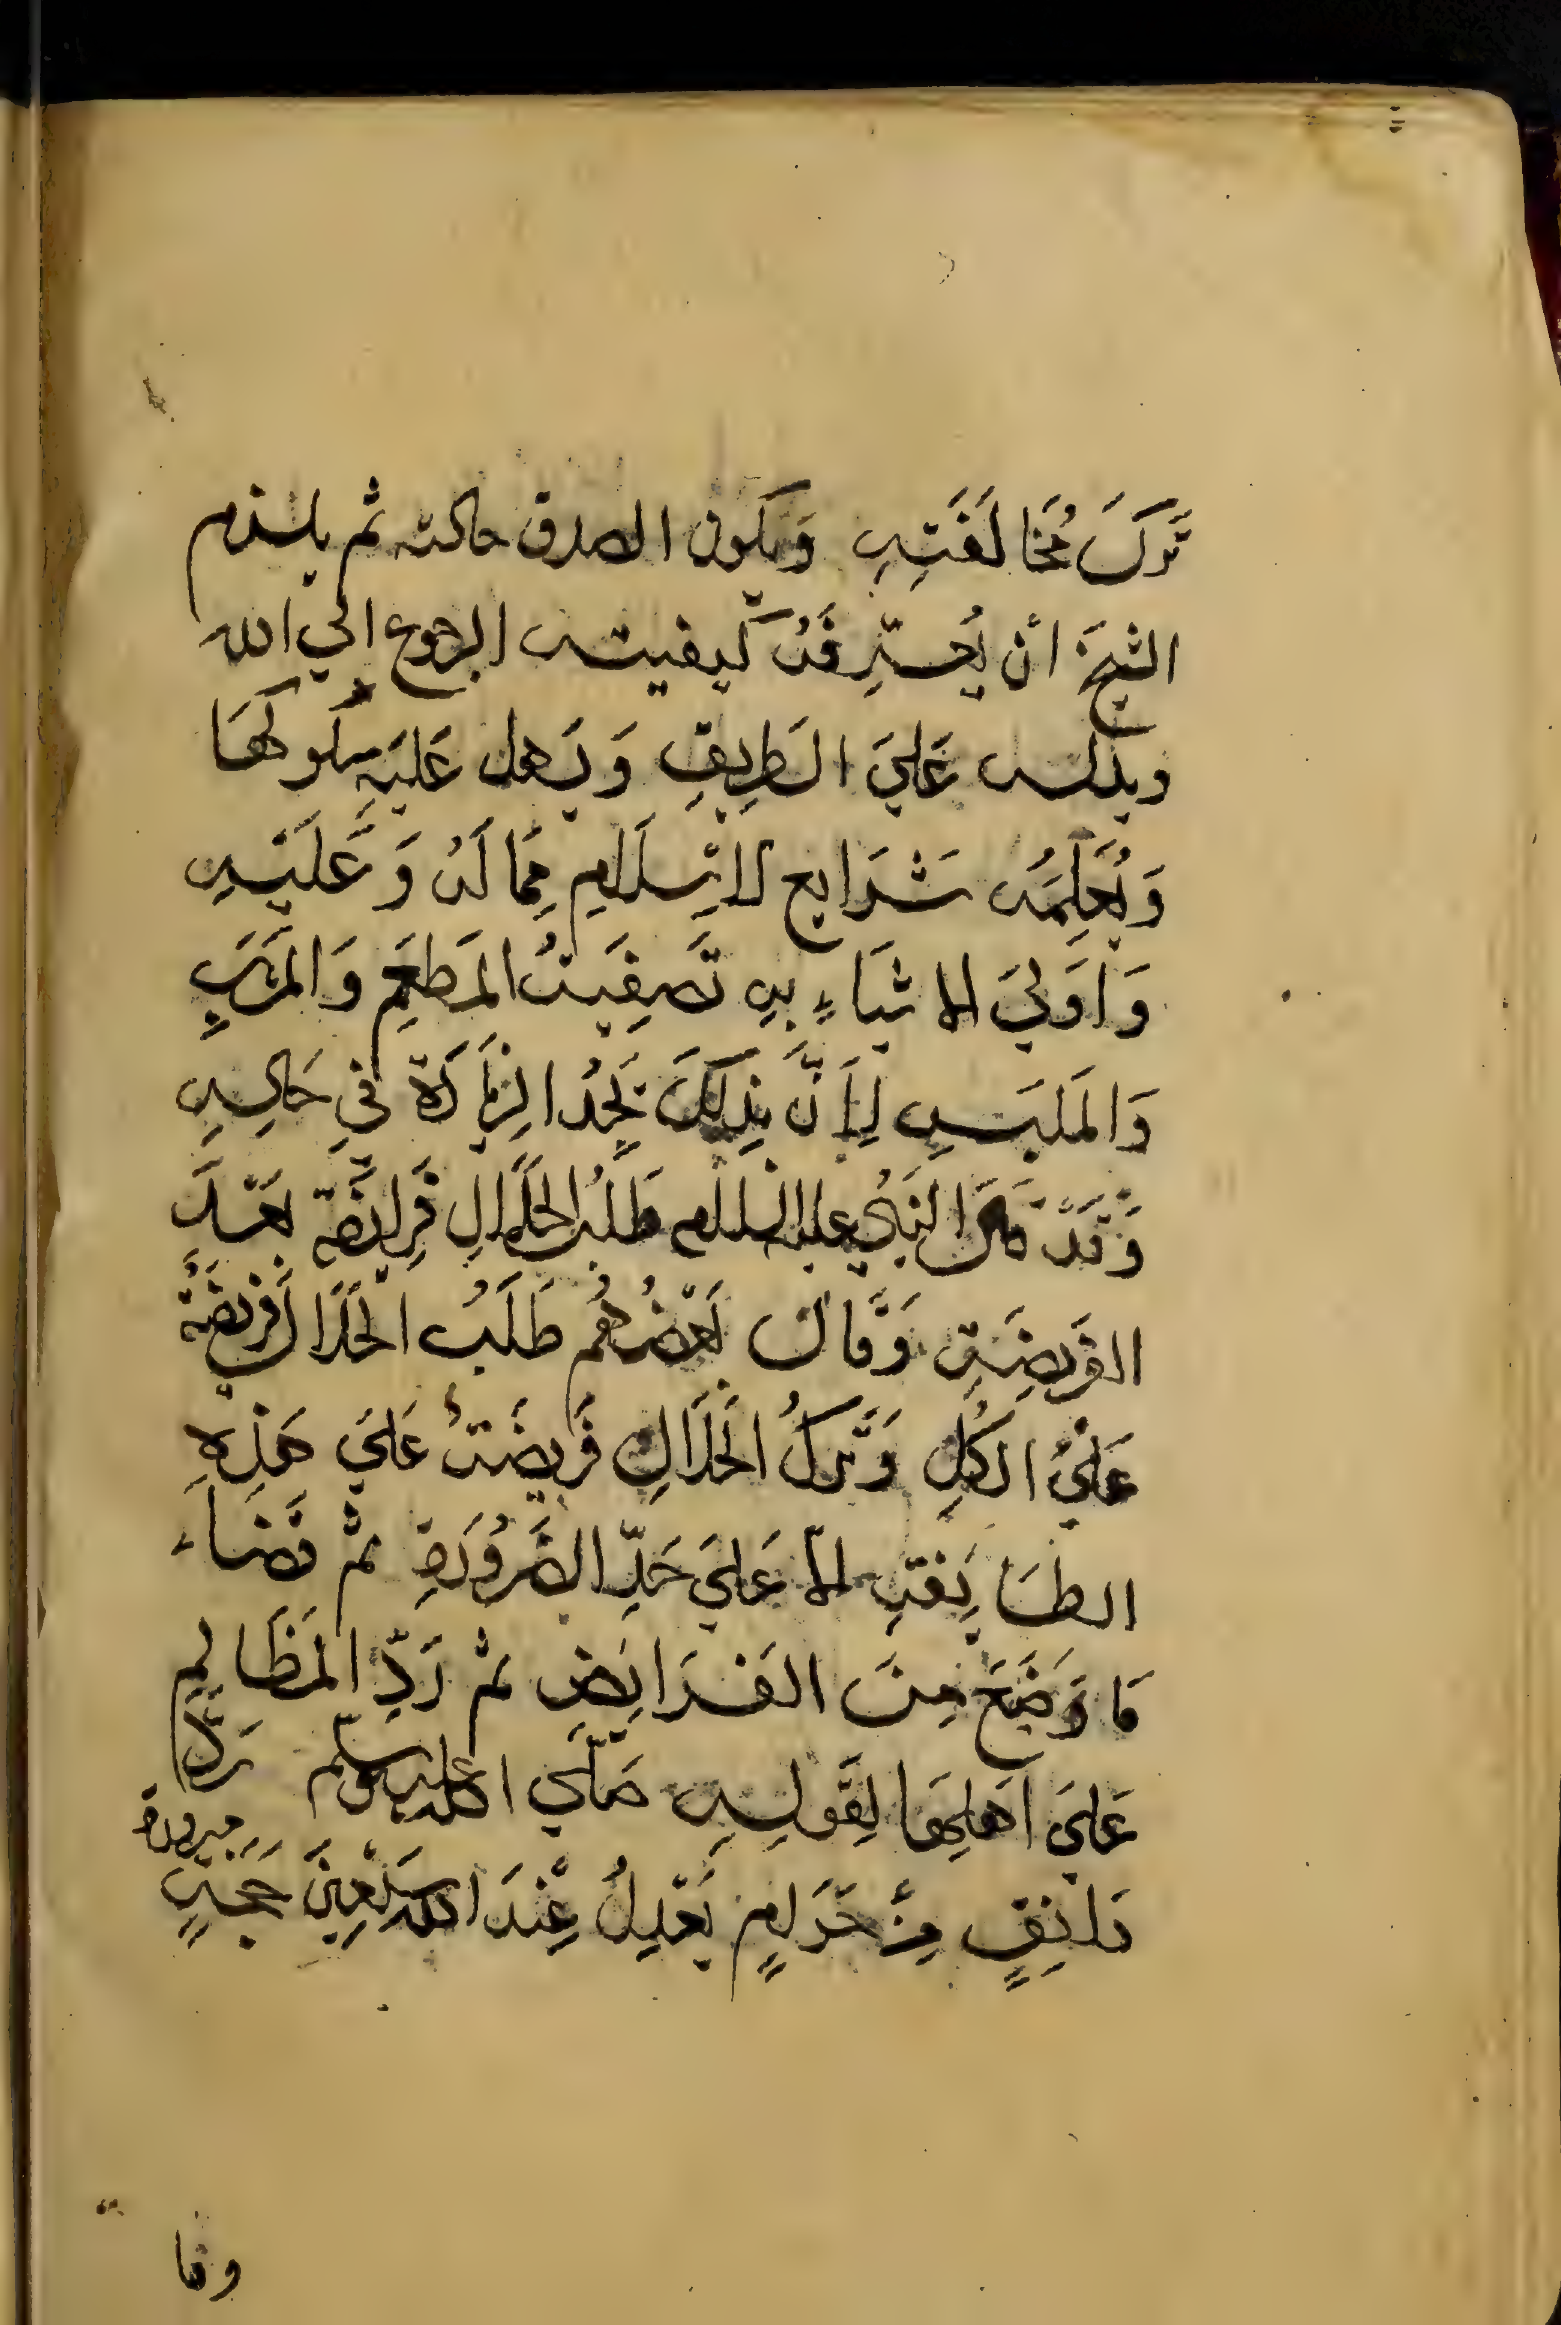 تَركَ مُخَالَفَتِهِ وَيكون الصدق حالته ثم يلتزم
الشيخ ان يُعَرِّفَهُ كيفيته الرجوع الي الله
ويدله عَليَ الطَرِيقِ وَيَسهل عَليَهِ سُلوكهَا
وَيُعَلِّمَهُ شَرَايع الاِسْلَامِ مِمَا لَهُ وَعَلَيْهِ
وَاَوَليَ الاشيَاءِ بِهِ تَصفِيَتُ المَطعَمِ وَالمَشرَبِ
وَالمَلبَسِ لِاَنَّ بِذلِكَ يَجِدُ الزِيَادَةَ فيِ حَالِهِ
وَقَدْ قَالَ النَبيُ عليه السلام طَلَبُ الحَلَالِ فَرِيضَة بَعْدَ
الفَريضَةِ وَقَالَ بَعْضُهُم طَلَبُ الحَلَال فَريضَة
عَليَ الكُلِ وَتَركُ الحَلَالِ فَريضَتُ عَليَ هَذِهِ
الطَايِفَةِ الا عَليَ حَدِّ الضَرُورَةِ ثم قضَاءَ
مَا وَضَيَعَ مِنَ الفَرَايِضِ ثم رَدِّ المَظَالِمِ
عَليَ اَهلِهَا لِقَولِهِ صَلّي الله عليه وسلم رَدُّ
دَانِقٍ مِنْ حَرَامٍ يَعْدِلُ عِنْدَ الله سَبْعِينَ حَجَةٍ
مبرورة
وقا